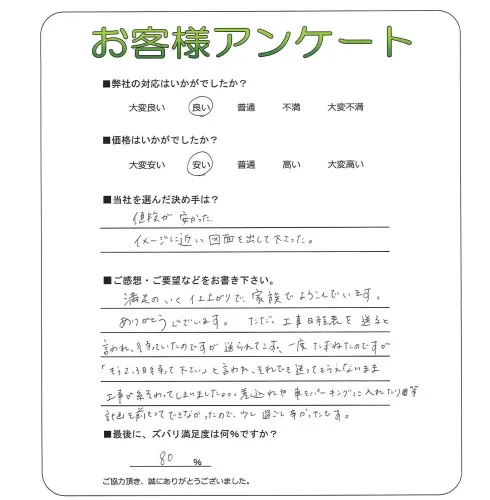 お客様アンケート
■弊社の対応はいかがでしたか？
大変良い 良い 普通 不満 大変不満
■価格はいかがでしたか？
大変安い 安い 普通 高い 大変高い
■当社を選んだ決め手は？
値段が安かった。
イメージに近い図面を出して下さった。
■ご感想・ご要望などをお書き下さい。
満足のいく仕上がりで、家族でよろこんでいます。
ありがとうございます。ただ、工事日程表を送ると
言われ、待っていたのですが送られてこず、一度たずねたのですが
「もう2、3日待って下さい」と言われ、それでも送ってもらえないまま
工事が終わってしまいました。差込れや車をパーキングに入れたり等
計画を前もってできなかったので、少し過ごし辛かったです。
■最後に、ズバリ満足度は何%ですか？
80 %
ご協力頂き、誠にありがとうございました。